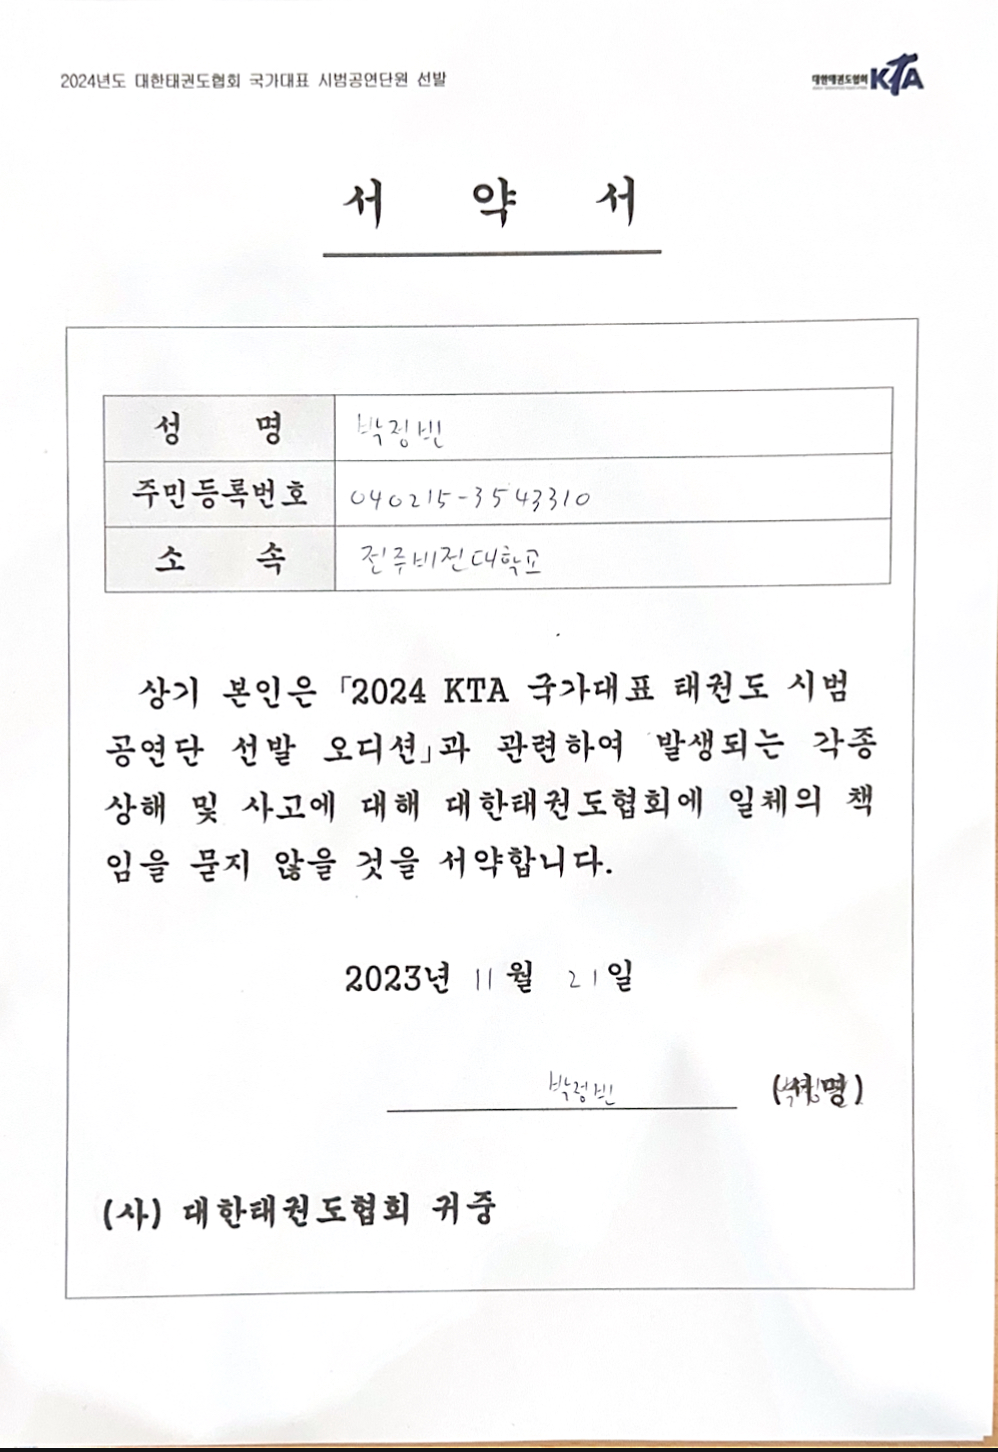 2024년도 대한태권도협회 국가대표 시범공연단원 선발
대한태권도협회 KTA
서 약 서
성 명 박정빈
주민등록번호 040215-3543310
소 속 전주비전대학교
상기 본인은 「2024 KTA 국가대표 태권도 시범
공연단 선발 오디션」과 관련하여 발생되는 각종
상해 및 사고에 대해 대한태권도협회에 일체의 책
임을 묻지 않을 것을 서약합니다.
2023년 11월 21일
박정빈 (서명)
(사) 대한태권도협회 귀중